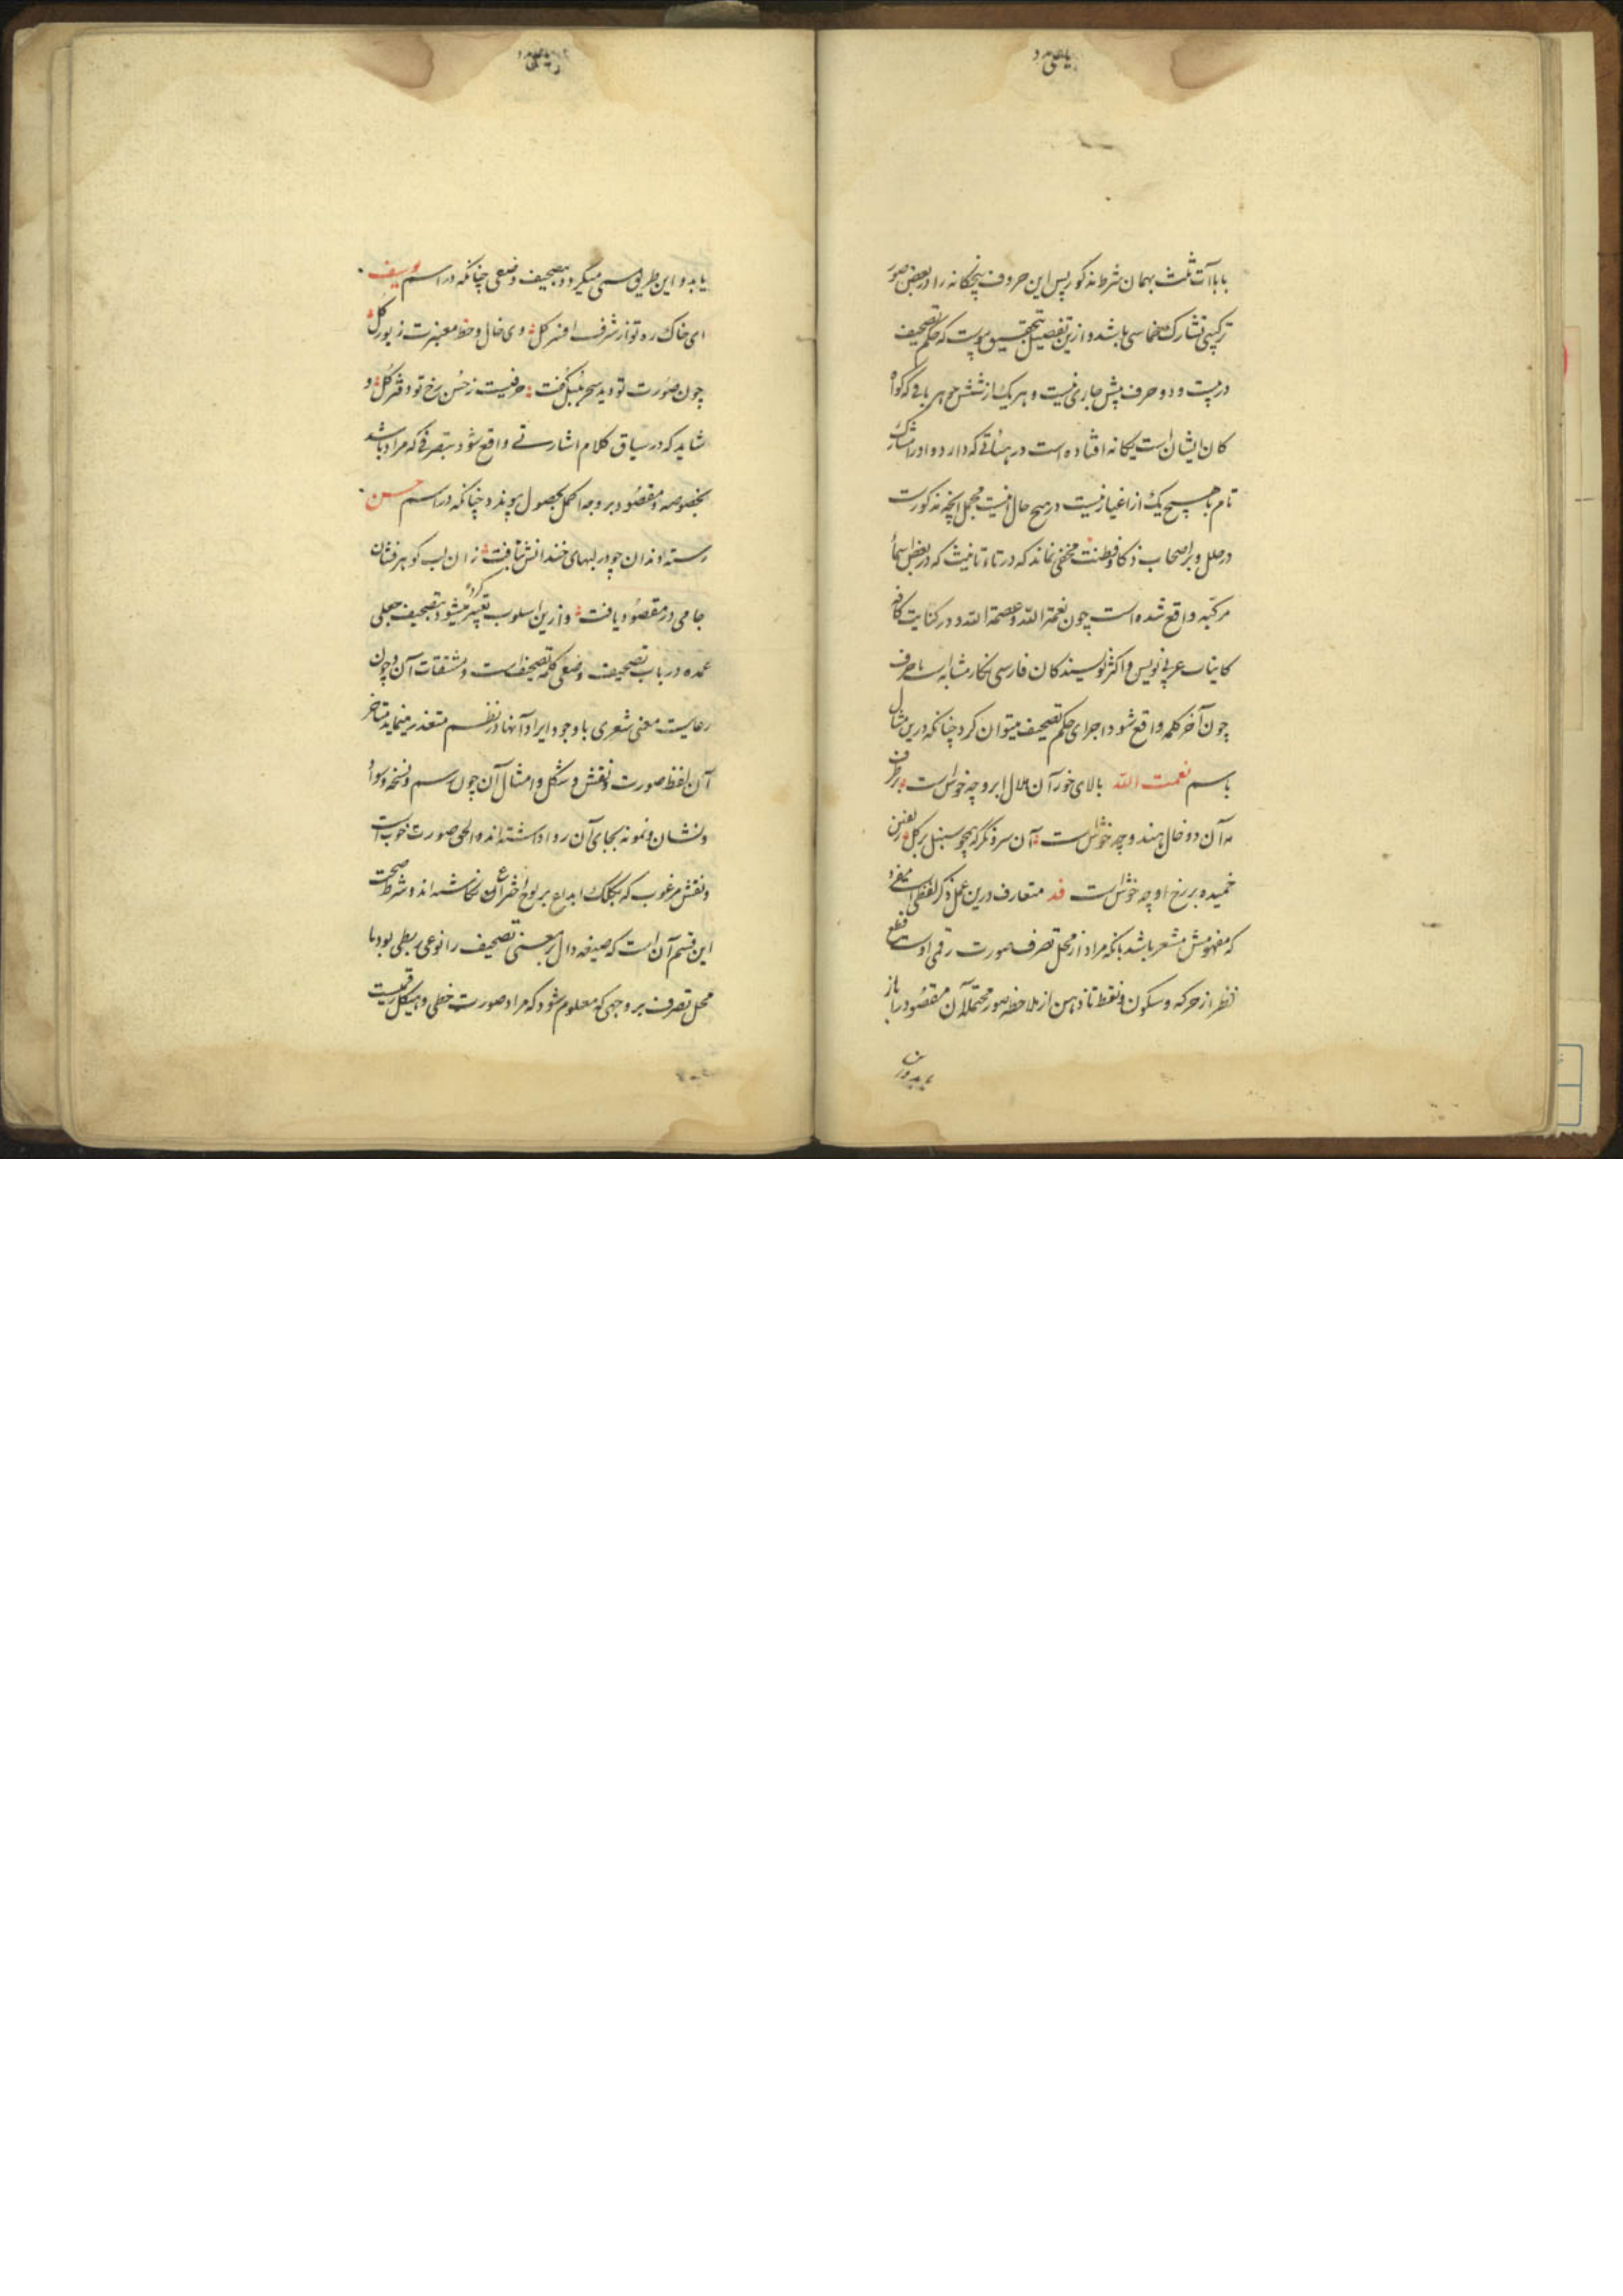 با باآت ثلث بهمان شرط مذکور پس این حروف پنجگانه را در بعض صور
ترکیبی تشارک خماسی باشد و ازین تفصیل بتحقیق پیوست که حکم تصحیف
در بیست و دو حرف پیش جاری نیست و هر یک از شش جوهر باقی که کواه
کان ایشان است یکانه افتاده است در هیئاتی که دارد و او را مشارکت
تام با هیچ یک از اغیار نیست در هیچ حال اینست مجمل آنچه مذکورست
در حلل و بر اصحاب ذکا و فطنت مخفی نماند که در تاء تانیث که در بعض اسماء
مرکبه واقع شده است چون نعمة الله و عصمة الله و در کتابت کافه
کاتبان عربی نویس و اکثر نویسندکان فارسی نکار مشابه است با حرف
چون آخر کلمه واقع شود اجرای حکم تصحیف میتوان کرد چنانکه درین مثال
باسم نعمت الله بالای خور آن هلال ابرو چه خوش است بر طرف
مه آن دو خال هندو چه خوش است آن سرو نکر که همچو سنبل بر کل زلفین
خمیده بر رخ او چه خوش است قد متعارف درین عمل ذکر لفظی است مفرد
که مفهومش مشعر باشد بانکه مراد از محل تصرف صورت رقمی اوست قطع
نظر از حرکه و سکون و نقط تا ذهن از ملاحظه صور محتمله آن مقصود را باز
یابد و این طریق مسمی میگردد بتصحیف وضعی چنانکه در اسم یوسف
ای خاک ره تو از شرف افسر کل وی خال و خط معنبرت زیور کل
چون صورت تو دید سحر بلبل گفت حرفیست ز حسن رخ تو دفتر کل و
شاید که در سیاق کلام اشارتی واقع شود بتصرفی که مراد باشد
بخصوصه و مقصود بر وجه اکمل بحصول پیوندد چنانکه در اسم حسن
رسته دندان چو در لبهای خندانش بتافت زان لب کوهر فشان
جامی در مقصود یافت و ازین اسلوب تعبیر کرده میشود بتصحیف جعلی
عمده در باب تصحیف وضعی کلمه تصحیفات و مشتقات آن و چون
رعایت معنی شعری با وجود ایراد آنها در نظم متعذر مینماید متاخر
آن لفظ صورت و نقش و شکل و امثال آن چون رسم و نسخه و سواد
و نشان و نمونه بجای آن روا داشته اند و الحق صورت خوب است
و نقش مرغوب که بکلک ابداع بر لوح اختراع آن نکاشته اند و شرط صحت
این قسم آن است که صیغه دال بر معنی تصحیف را نوعی ربطی بود با
محل تصرف بر وجهی که معلوم شود که مراد صورت خطی و هیکل رقمیست